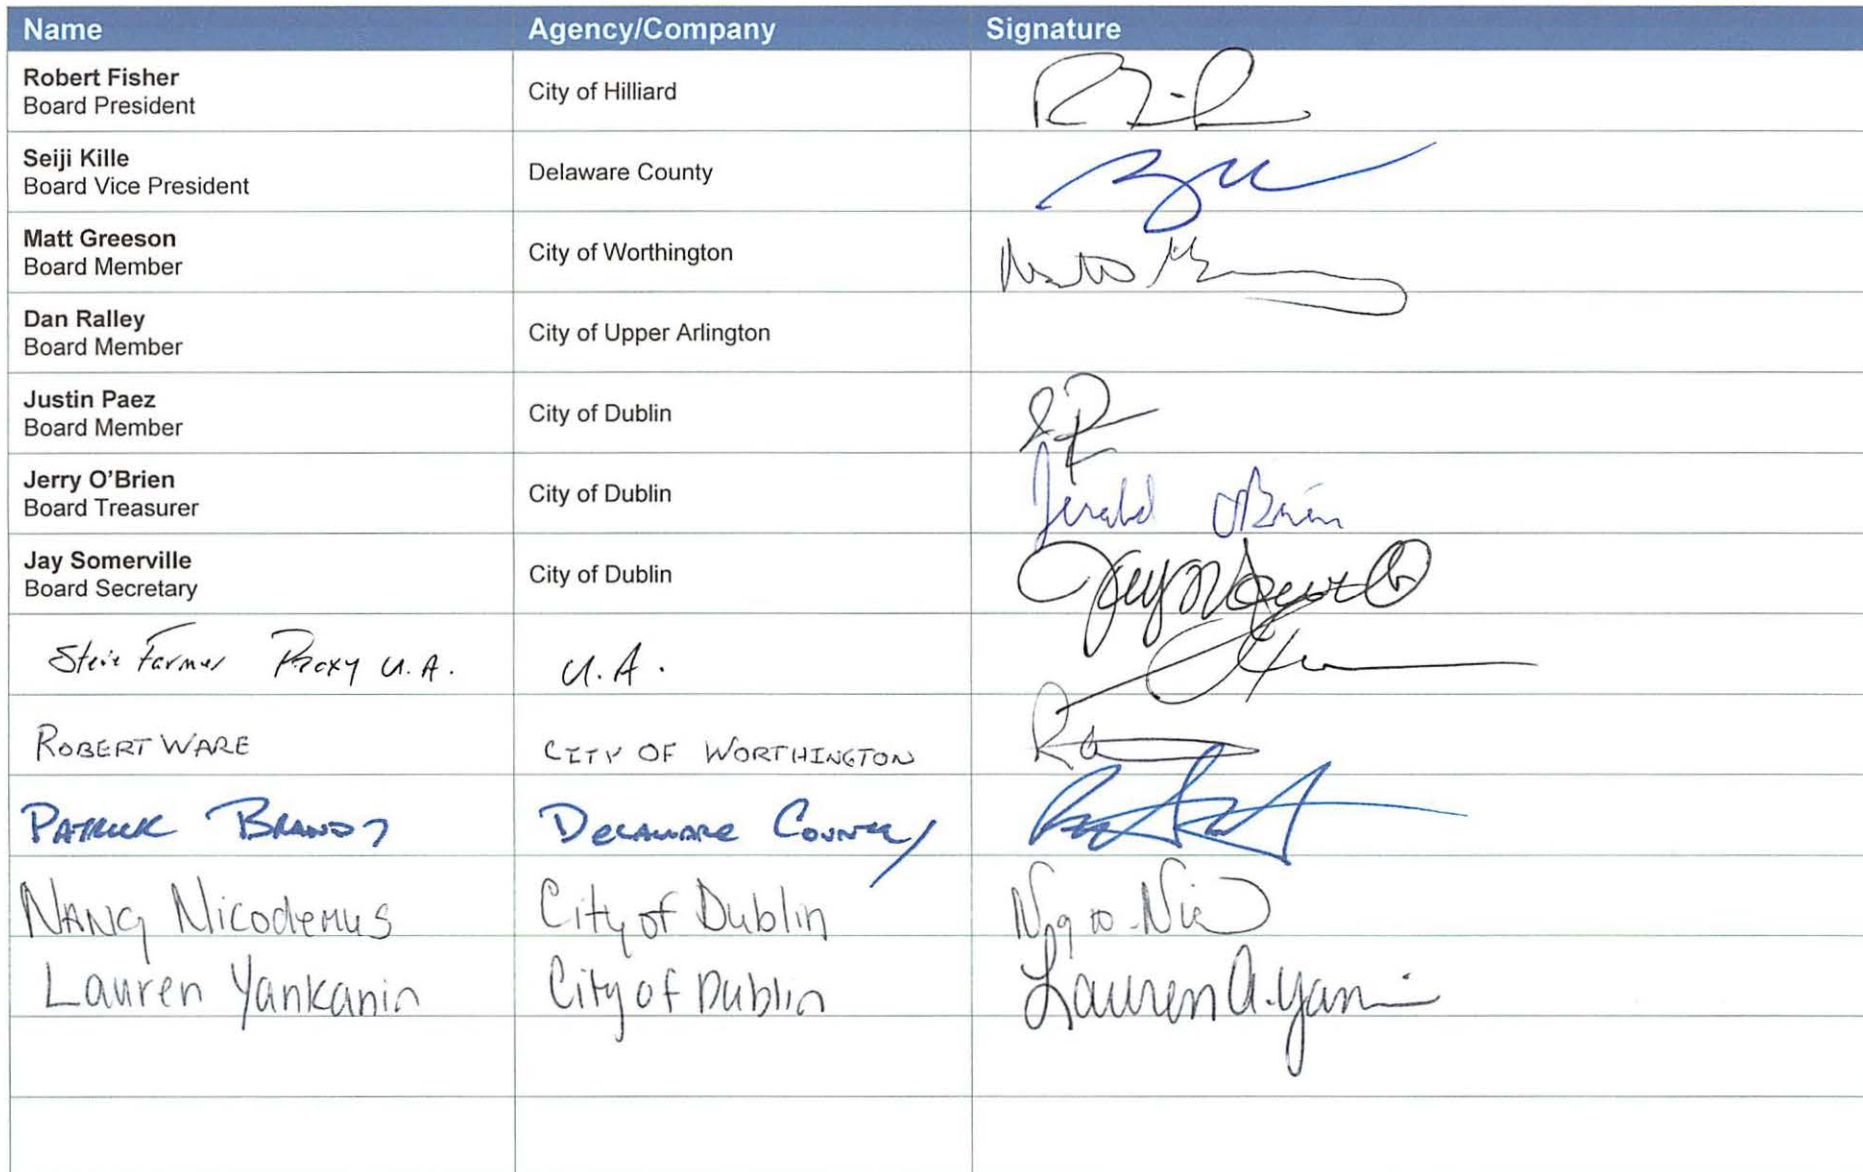 Name Agency/Company Signature
Robert Fisher
Board President
City of Hilliard
Seiji Kille
Board Vice President
Delaware County
Matt Greeson
Board Member
City of Worthington
Dan Ralley
Board Member
City of Upper Arlington
Justin Paez
Board Member
City of Dublin
Jerry O'Brien
Board Treasurer
City of Dublin
Jerald O'Brien
Jay Somerville
Board Secretary
City of Dublin
Steve Farmer Proxy U.A. U.A.
ROBERT WARE CITY OF WORTHINGTON
PATRICK BRANDT DELAWARE COUNTY
NANCY Nicodemus City of Dublin
Lauren Yankanin City of Dublin Lauren A. Yan